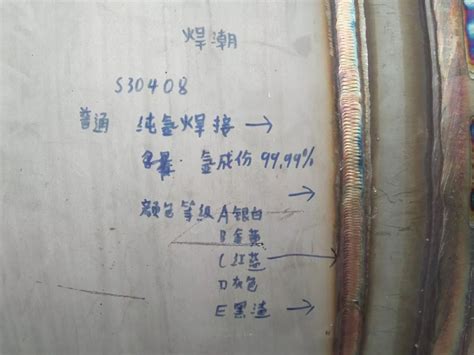 焊潮
S30408
普通 纯氩焊接 →
含量 氩成份 99.99%
颜色等级 A 银白
B 金黄
C 红蓝
D 灰色
E 黑渣 →